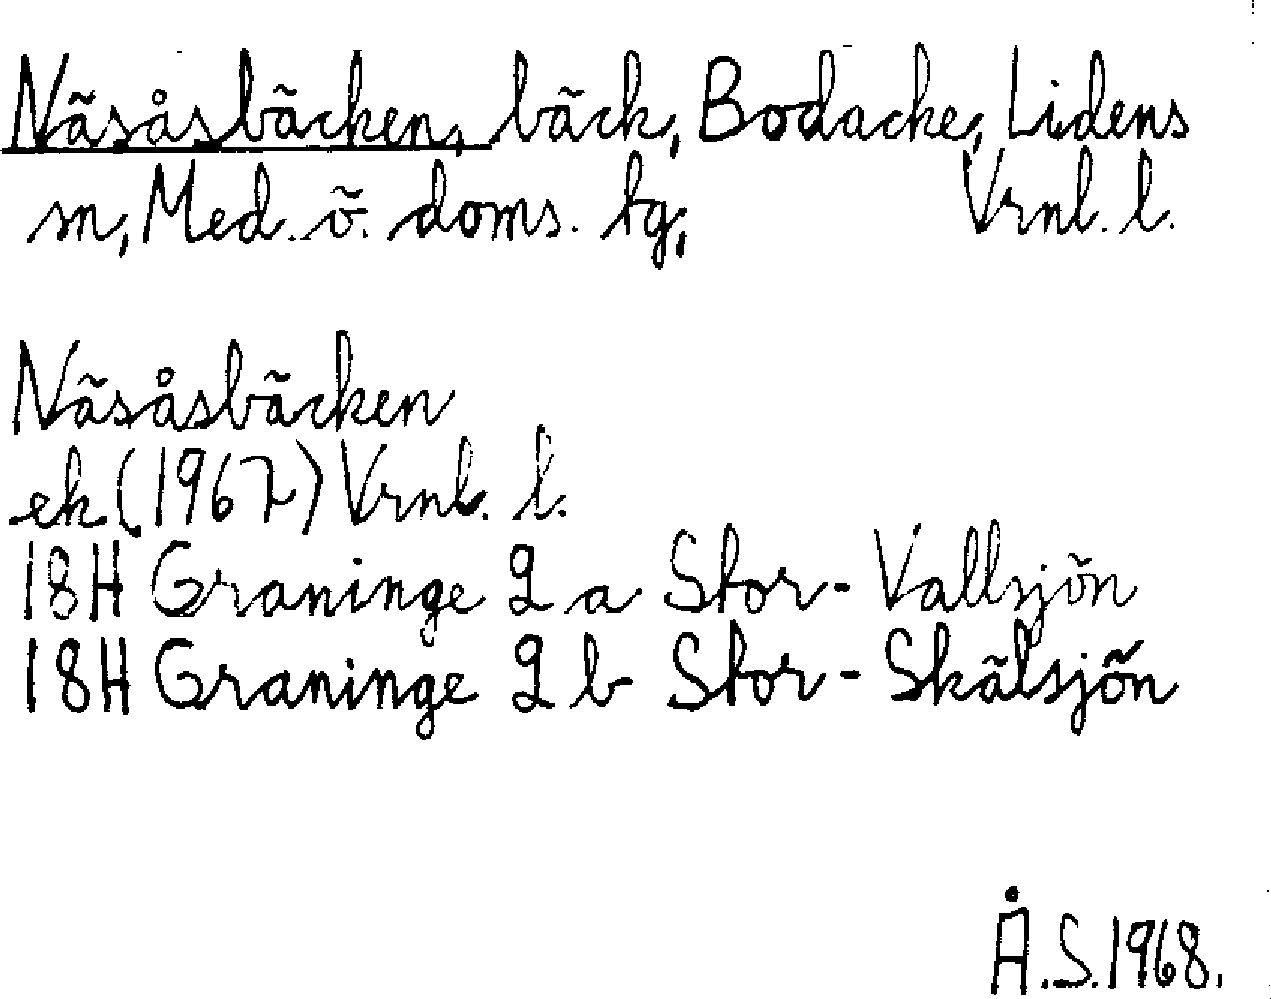 Näsåsbäcken, bäck, Bodacke, Lidens
sn, Med. ö. doms. tg, Vrnl. l.
Näsåsbäcken
ek (1967) Vrnl. l.
18H Graninge 2 a Stor-Vallsjön
18H Graninge 2 b Stor-Skälsjön
Å.S.1968.